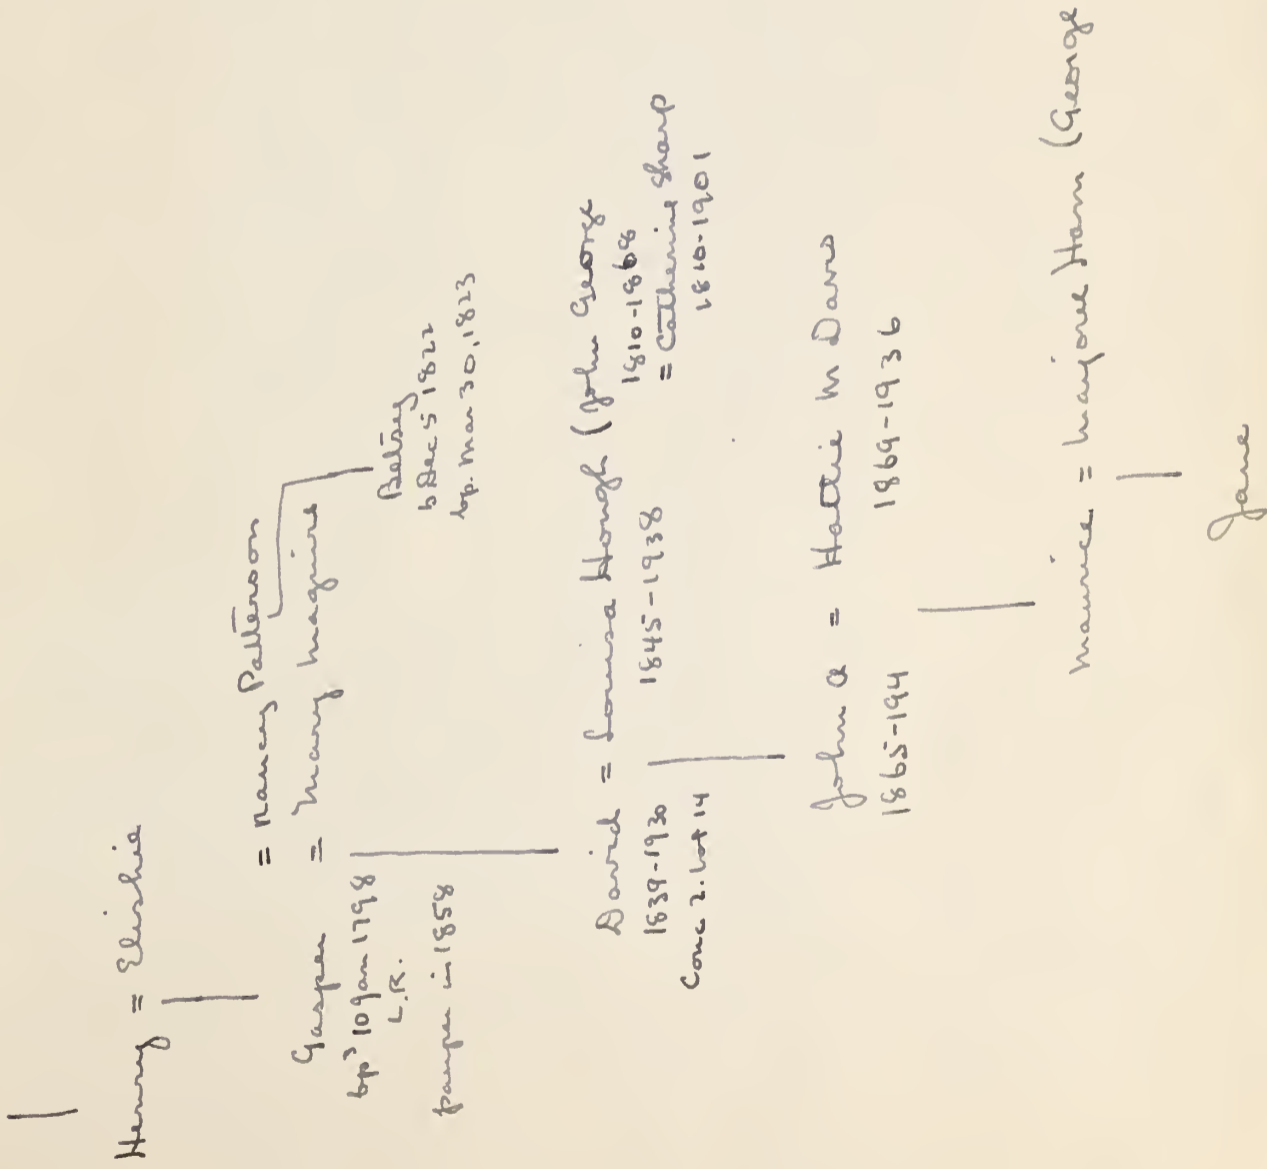 Henry = Elishie
= Nancy Patterson
Gasper = Mary Maguire
bp'd 10 Jan 1798
L.R.
pauper in 1858
Betsey
b Dec 5 1822
bp. Mar 30, 1823
David = Louisa Hough (John George
1839-1930 1845-1938 1810-1868
Conc 2. Lot 14 = Catherine Sharp
1810-1901
John A = Hattie M Davis
1865-194 1869-1936
Maurice = Marjorie Ham (George
Jane